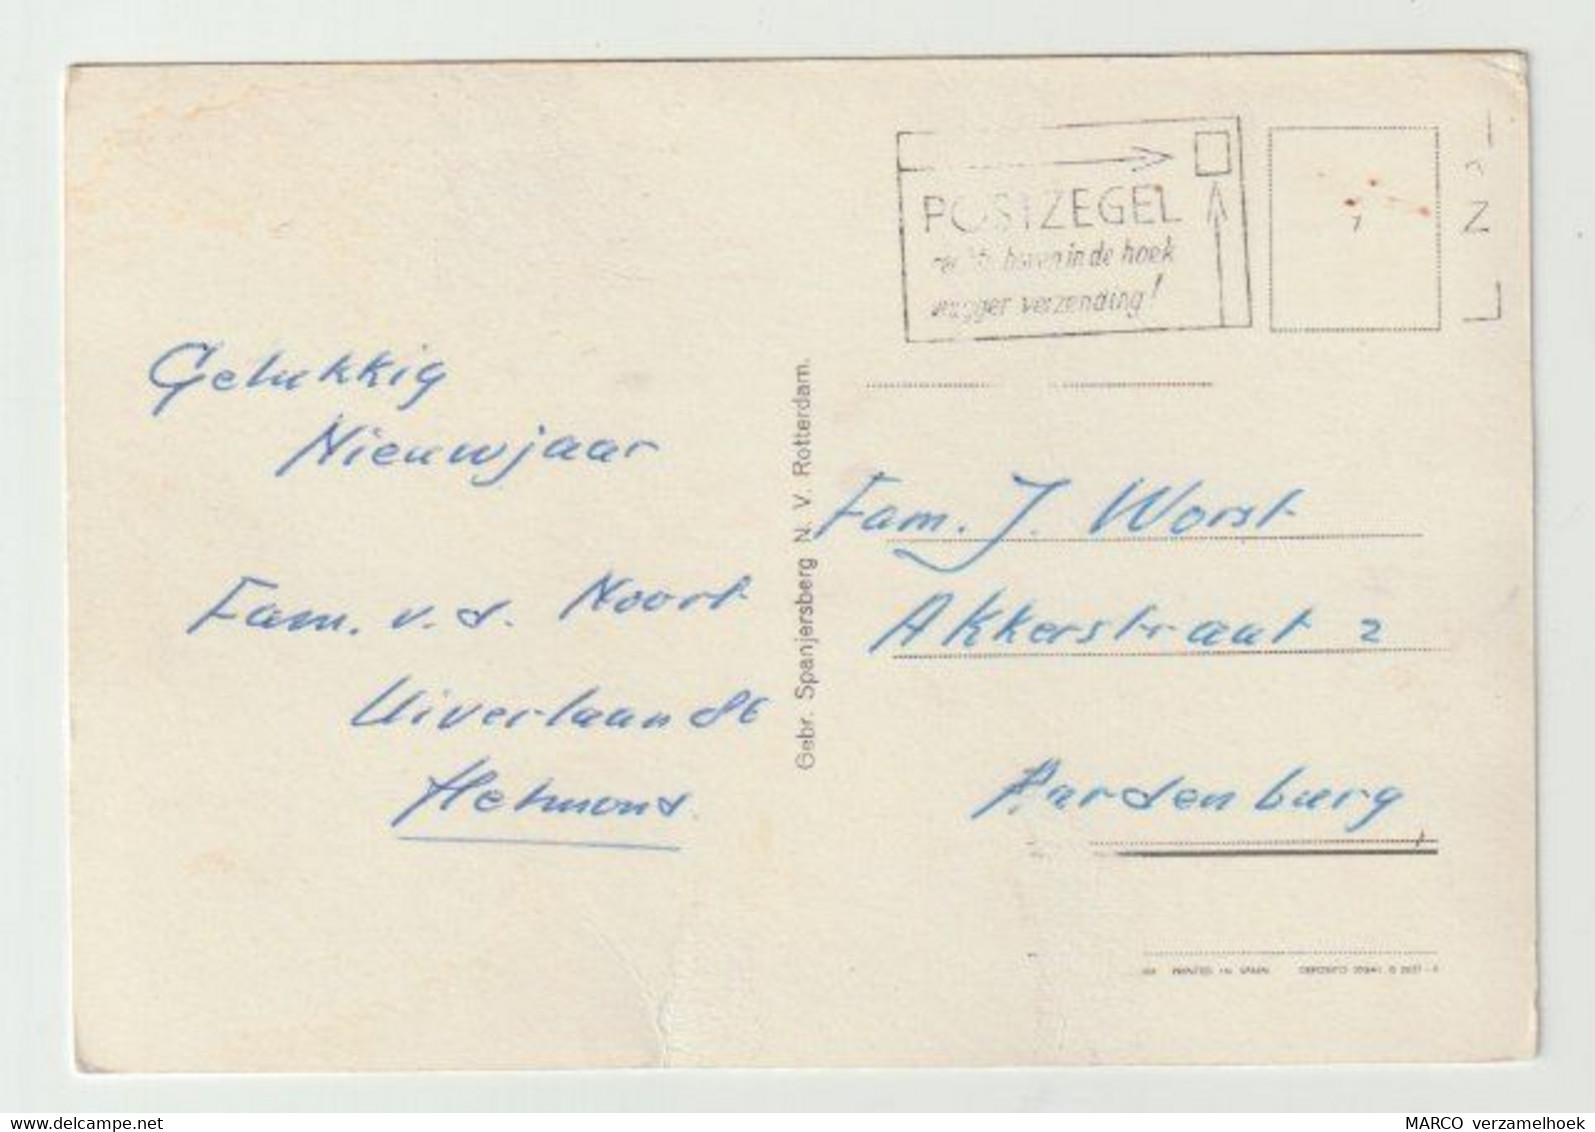 POSTZEGEL
boven in de hoek
vlugger verzending!
Gelukkig
Nieuwjaar
Fam. v.d. Noort
Uiverlaan 86
Helmond
Gebr. Spanjersberg N. V. Rotterdam.
Fam. J. Worst
Akkerstraat 2
Aardenburg
PRINTED IN SPAIN
MARCO verzamelhoek